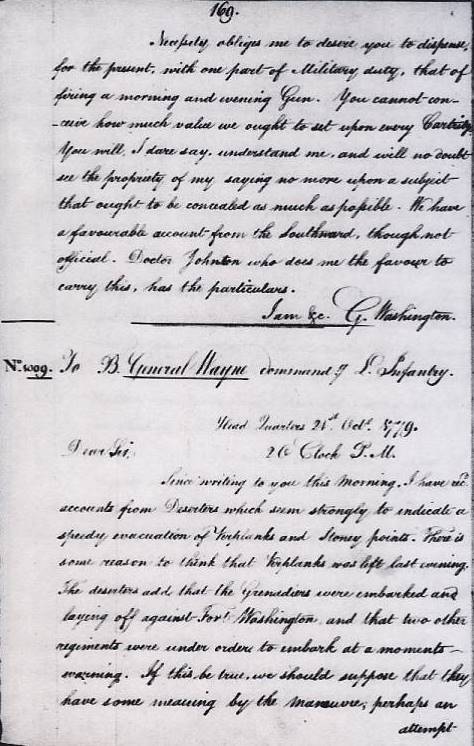 169.
Necessity obliges me to desire you to dispense,
for the present, with one part of Military duty, that of
firing a morning and evening Gun. You cannot con-
-ceive how much value we ought to set upon every Cartridge
You will, I dare say, understand me, and will no doubt
see the propriety of my saying no more upon a subject
that ought to be concealed as much as possible. We have
a favourable account from the Southward, though not
official. Doctor Johnson who does me the favour to
carry this, has the particulars.
I am &c. G. Washington.
No. 1009. To B. General Wayne command.g L. Infantry.
Head Quarters 21st Octr. 1779.
Dear Sir, 2 O'Clock P.M.
Since writing to you this Morning, I have recd.
accounts from Deserters which seem strongly to indicate a
speedy evacuation of Verplanks and Stoney points. There is
some reason to think that Verplanks was left last evening.
The deserters add that the Grenadiers were embarked and
laying off against Fort Washington, and that two other
regiments were under orders to embark at a moments
warning. If this be true, we should suppose that they
have some meaning by the manœuvre, perhaps an
attempt